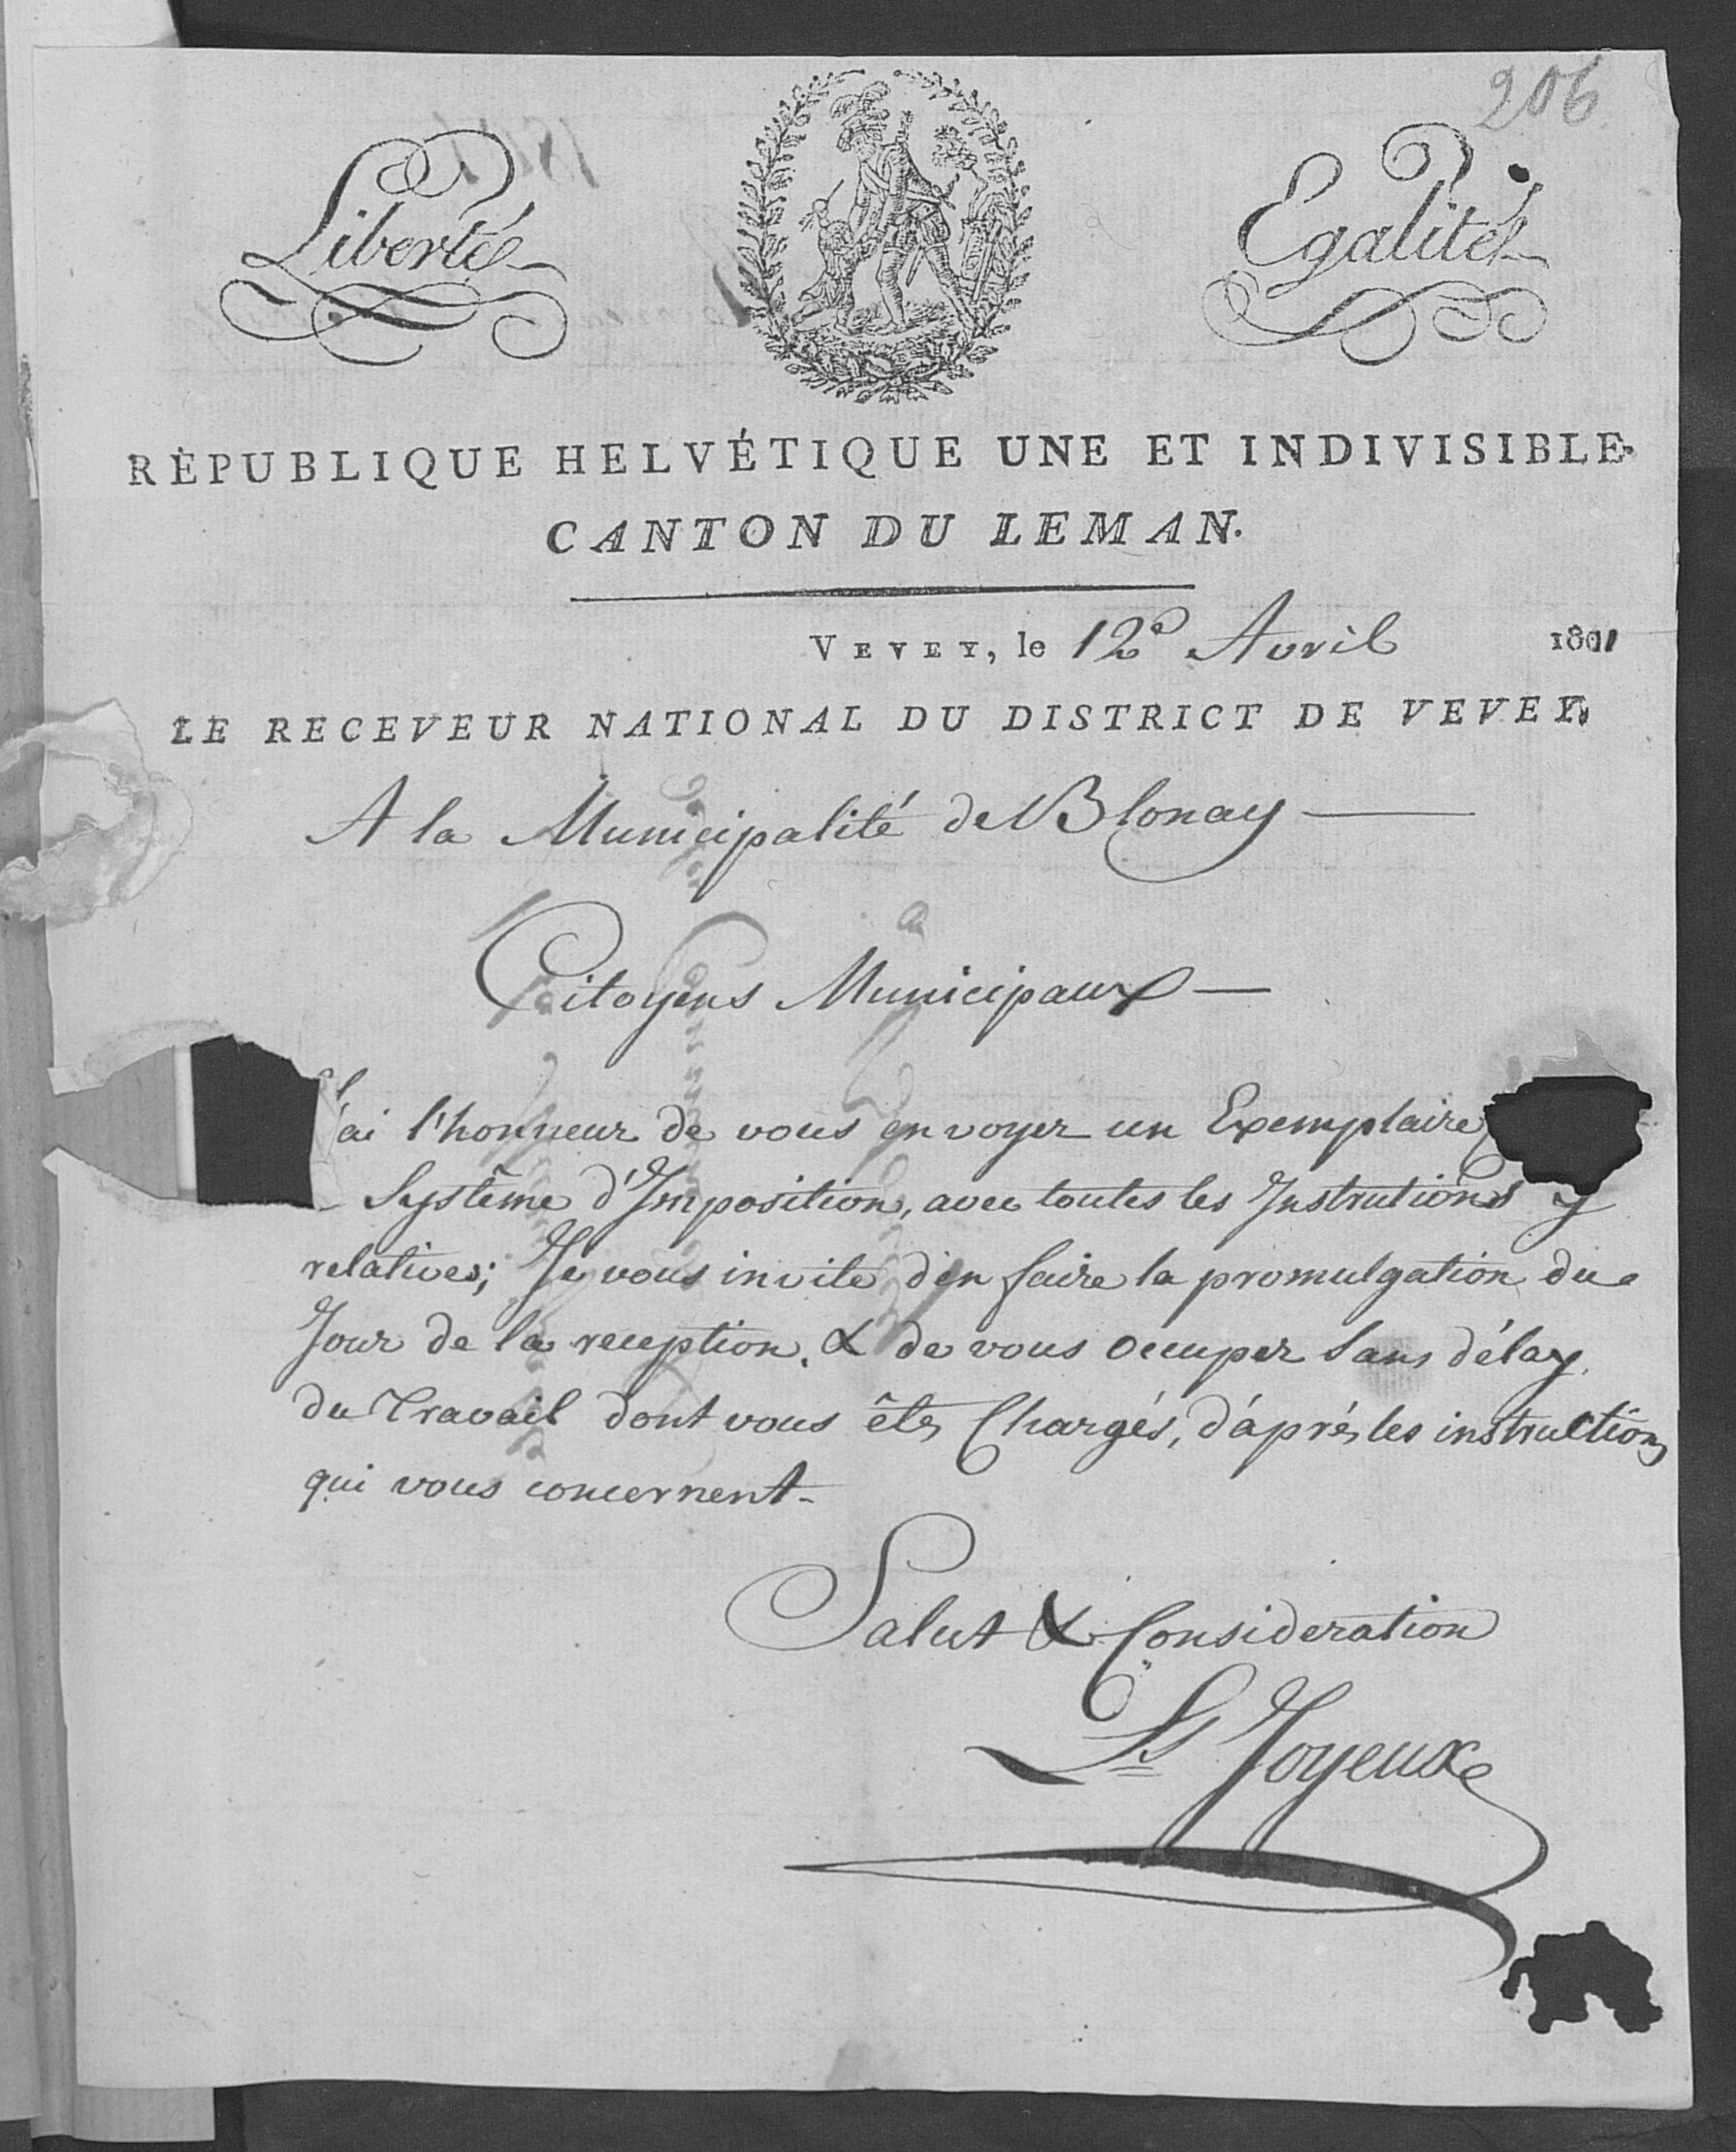 206
Liberté
Egalité
RÉPUBLIQUE HELVÉTIQUE UNE ET INDIVISIBLE.
CANTON DU LEMAN.
VEVEY, le 12e Avril 1801
LE RECEVEUR NATIONAL DU DISTRICT DE VEVEY,
A la Municipalité de Blonay
Citoyens Municipaux
J'ai l'honneur de vous envoyer un Exemplaire
Systême d'Imposition, avec toutes les Instrutions y
relatives; Je vous invite d'en faire la promulgation du
Jour de la reception, & de vous occuper sans délay
du Travail dont vous êtes Chargés, d'áprés les instructions
qui vous concernent.
Salut & Consideration
Ls Joyeux